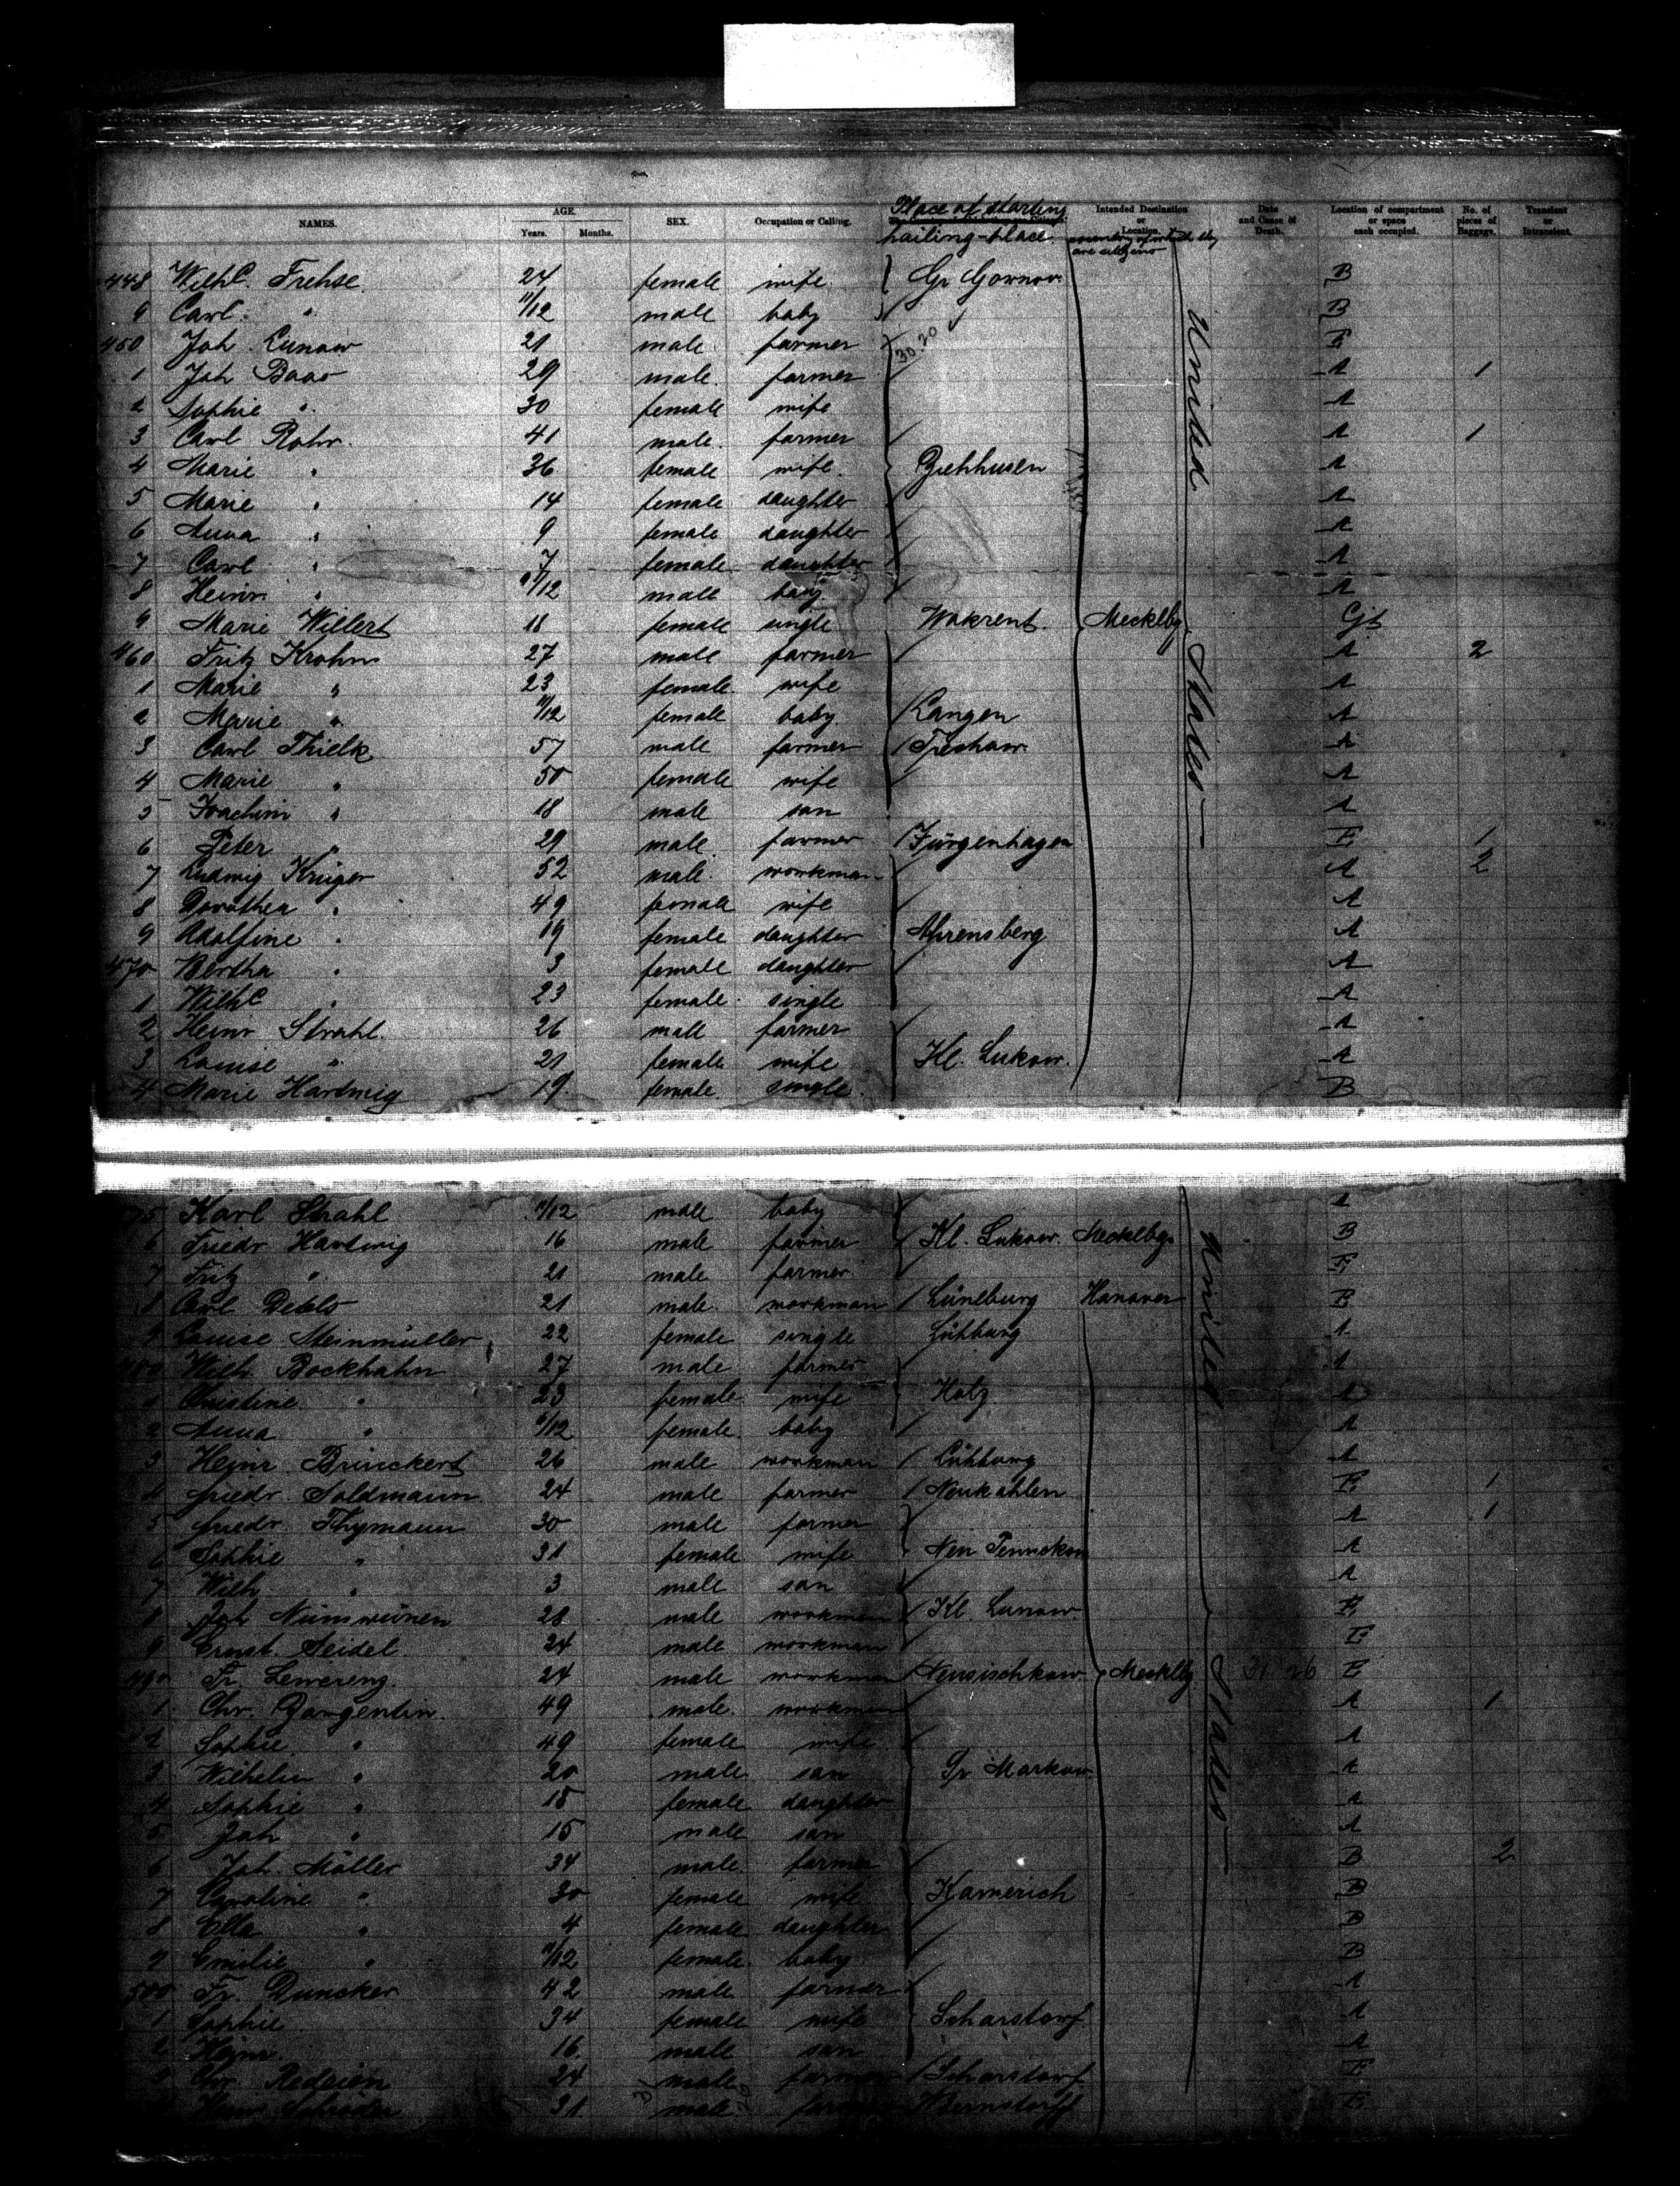 NAMES. AGE. Years. Months. SEX. Occupation or Calling. Place of starting hailing-place Intended Destination or Location. country of which they are citizens Date and Cause of Death. Location of compartment or space each occupied. No. of pieces of Baggage. Transient or Intransient.
448 Wilh. Frehse 24 female wife Gr Gornow B
9 Carl " 11/12 male baby B
450 Joh Lunow 21 male farmer 30.20 E
1 Joh Baas 29 male farmer A 1
2 Sophie " 30 female wife A
3 Carl Rohr 41 male farmer A 1
4 Marie " 36 female wife Ziehhusen A
5 Marie " 14 female daughter A
6 Anna " 9 female daughter A
7 Carl " 7 female daughter A
8 Heinr " /12 male baby A
9 Marie Willert 18 female single Wokrent Mecklbg
460 Fritz Krohn 27 male farmer A 2
1 Marie " 23 female wife A
2 Marie " 11/12 female baby Langen A
3 Carl Thielk 57 male farmer Treshow A
4 Marie " 50 female wife A
5 Joachim " 18 male son A
6 Peter " 29 male farmer Jürgenhagen E 1
7 Ludwig Krüger 52 male workman A 2
8 Dorothea " 49 female wife A
9 Adolfine " 19 female daughter Ahrensberg A
470 Bertha " 3 female daughter A
1 Wilh " 23 female single A
2 Heinr Strahl 26 male farmer A
3 Louise " 21 female wife Kl. Lukow A
4 Marie Hartwig 19 female single B
United States
75 Karl Strahl /12 male baby A
6 Friedr Hartwig 16 male farmer Kl. Lukow Mecklbg B
7 Fritz " 21 male farmer E
8 Carl 21 male workman Lüneburg Hanover E
9 Louise Meinmüller 22 female single Lühburg A
480 Wilh. Bockhahn 27 male farmer A
1 Christine " 23 female wife Hotz A
2 Anna " 6/12 female baby A
3 Heinr Brinckert 26 male workman Lühburg A
4 Friedr Soldmann 24 male farmer Neukahlen E 1
5 Friedr. Thymann 30 male farmer A 1
6 Sophie " 31 female wife Neu A
7 Wilh " 3 male son A
8 Joh 28 male workman Kl. Lunow E
9 Ernst Seidel 24 male workman E
490 Fr. Lewereng 24 male workman Mecklbg E
1 Chr. Dangentin 49 male workman A 1
2 Sophie " 49 female wife A
3 Wilhelm " 20 male son Gr Markow A
4 Sophie " 18 female daughter A
5 Joh " 15 male son A
6 Joh. Möller 34 male farmer B 2
7 Caroline " 30 female wife Kamerich B
8 Ella " 4 female daughter B
9 Emilie " /12 female baby B
500 Fr. Duncker 42 male farmer A
1 Sophie 34 female wife Scharstorf A
2 Heinr 16 male son A
3 Chr. Redeien 24 male farmer Scharstorf E
31 male farmer Bernstorff E
United States